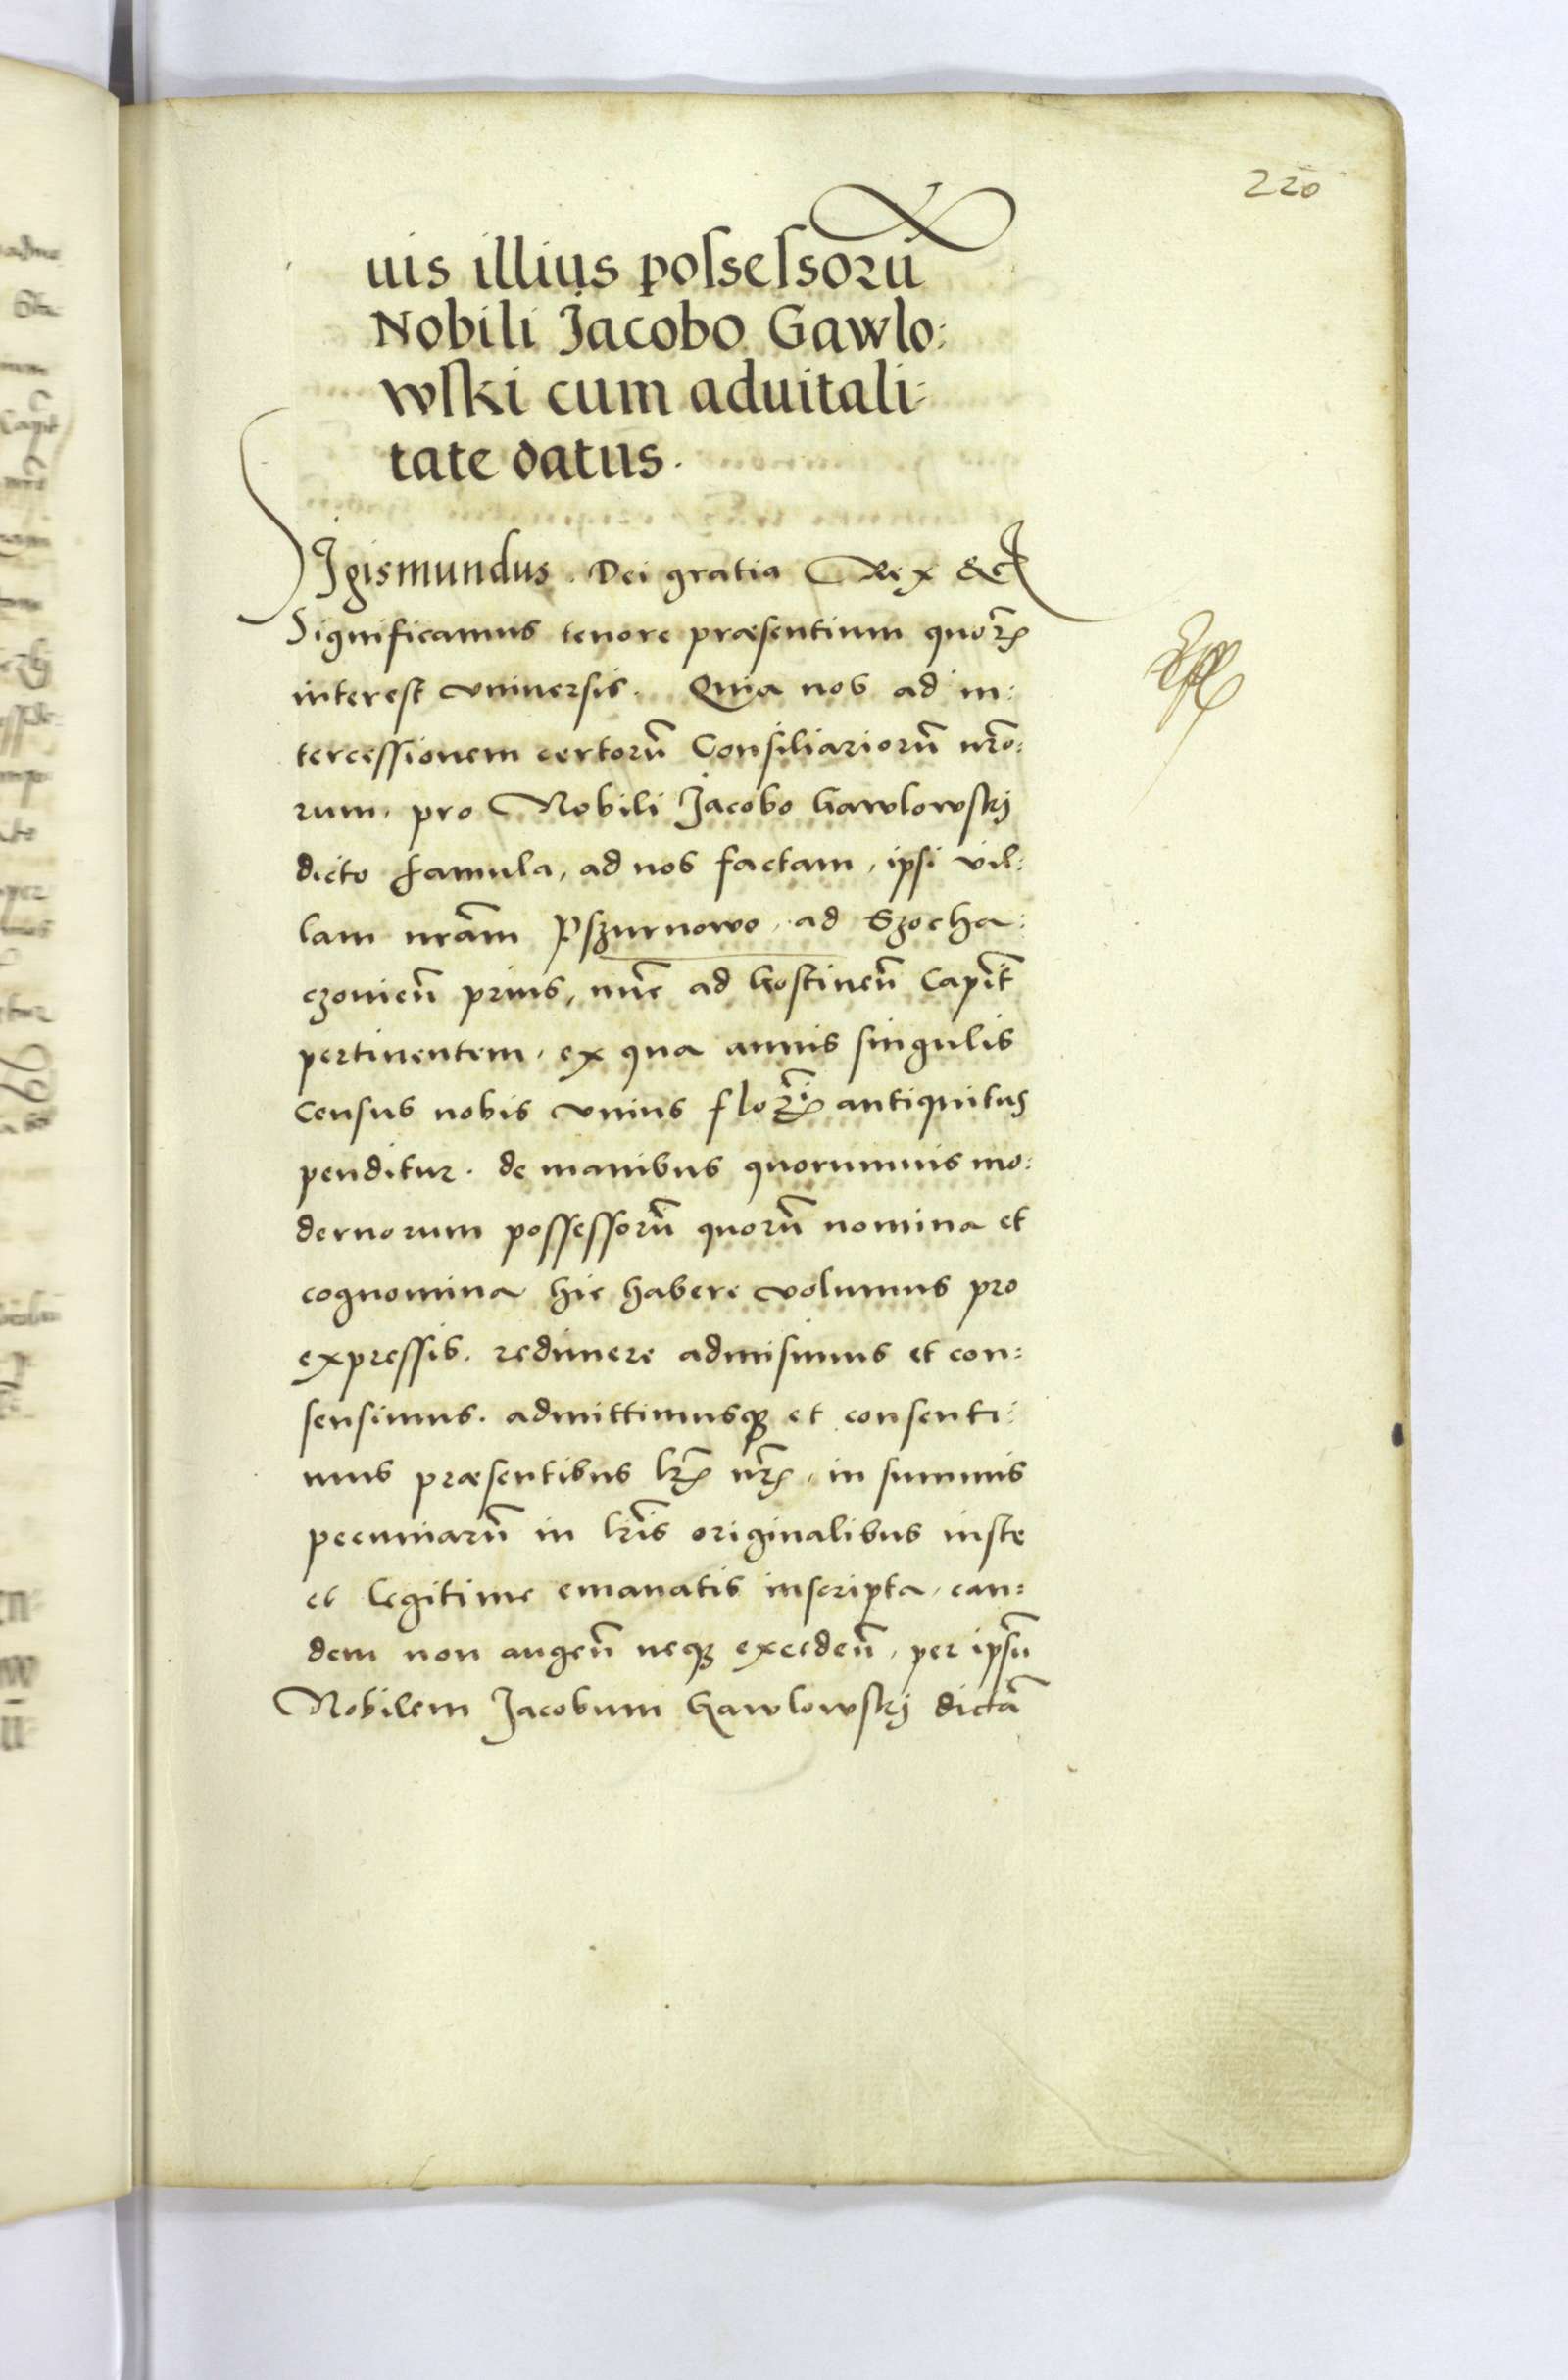 220
uis illius possessorū
Nobili Jacobo Gawlo:
wski cum aduitali:
tate datus.
SJgismundus. Dei gratia Rex &c
Significamus tenore præsentium quorꝝ
interest vniuersis. Quia nos ad in:
tercessionem certorū Consiliariorū nr̄o:
rum, pro Nobili Jacobo Gawlowskij
dicto famula, ad nos factam, ipsi vil:
lam nr̄am Pszurnowo, ad Szocha:
czouien̄ prius, nūc ad Gostinen̄ Capit̄
pertinentem, ex qua annis singulis
Census nobis vnius florꝝ antiquitus
penditur. de manibus quorumuis mo:
dernorum possessorū quorū nomina et
cognomina hic habere volumus pro
expressis. redimere admisimus et con:
sensimus. admittimusqꝫ et consenti:
mus præsentibus lr̄ꝝ nr̄ꝝ, in summis
pecuniarū in lr̄is originalibus iuste
et legitime emanatis inscripta, ean:
dem non augen̄ neqꝫ exceden̄, per ipsū
Nobilem Jacobum Gawlowskij dictā